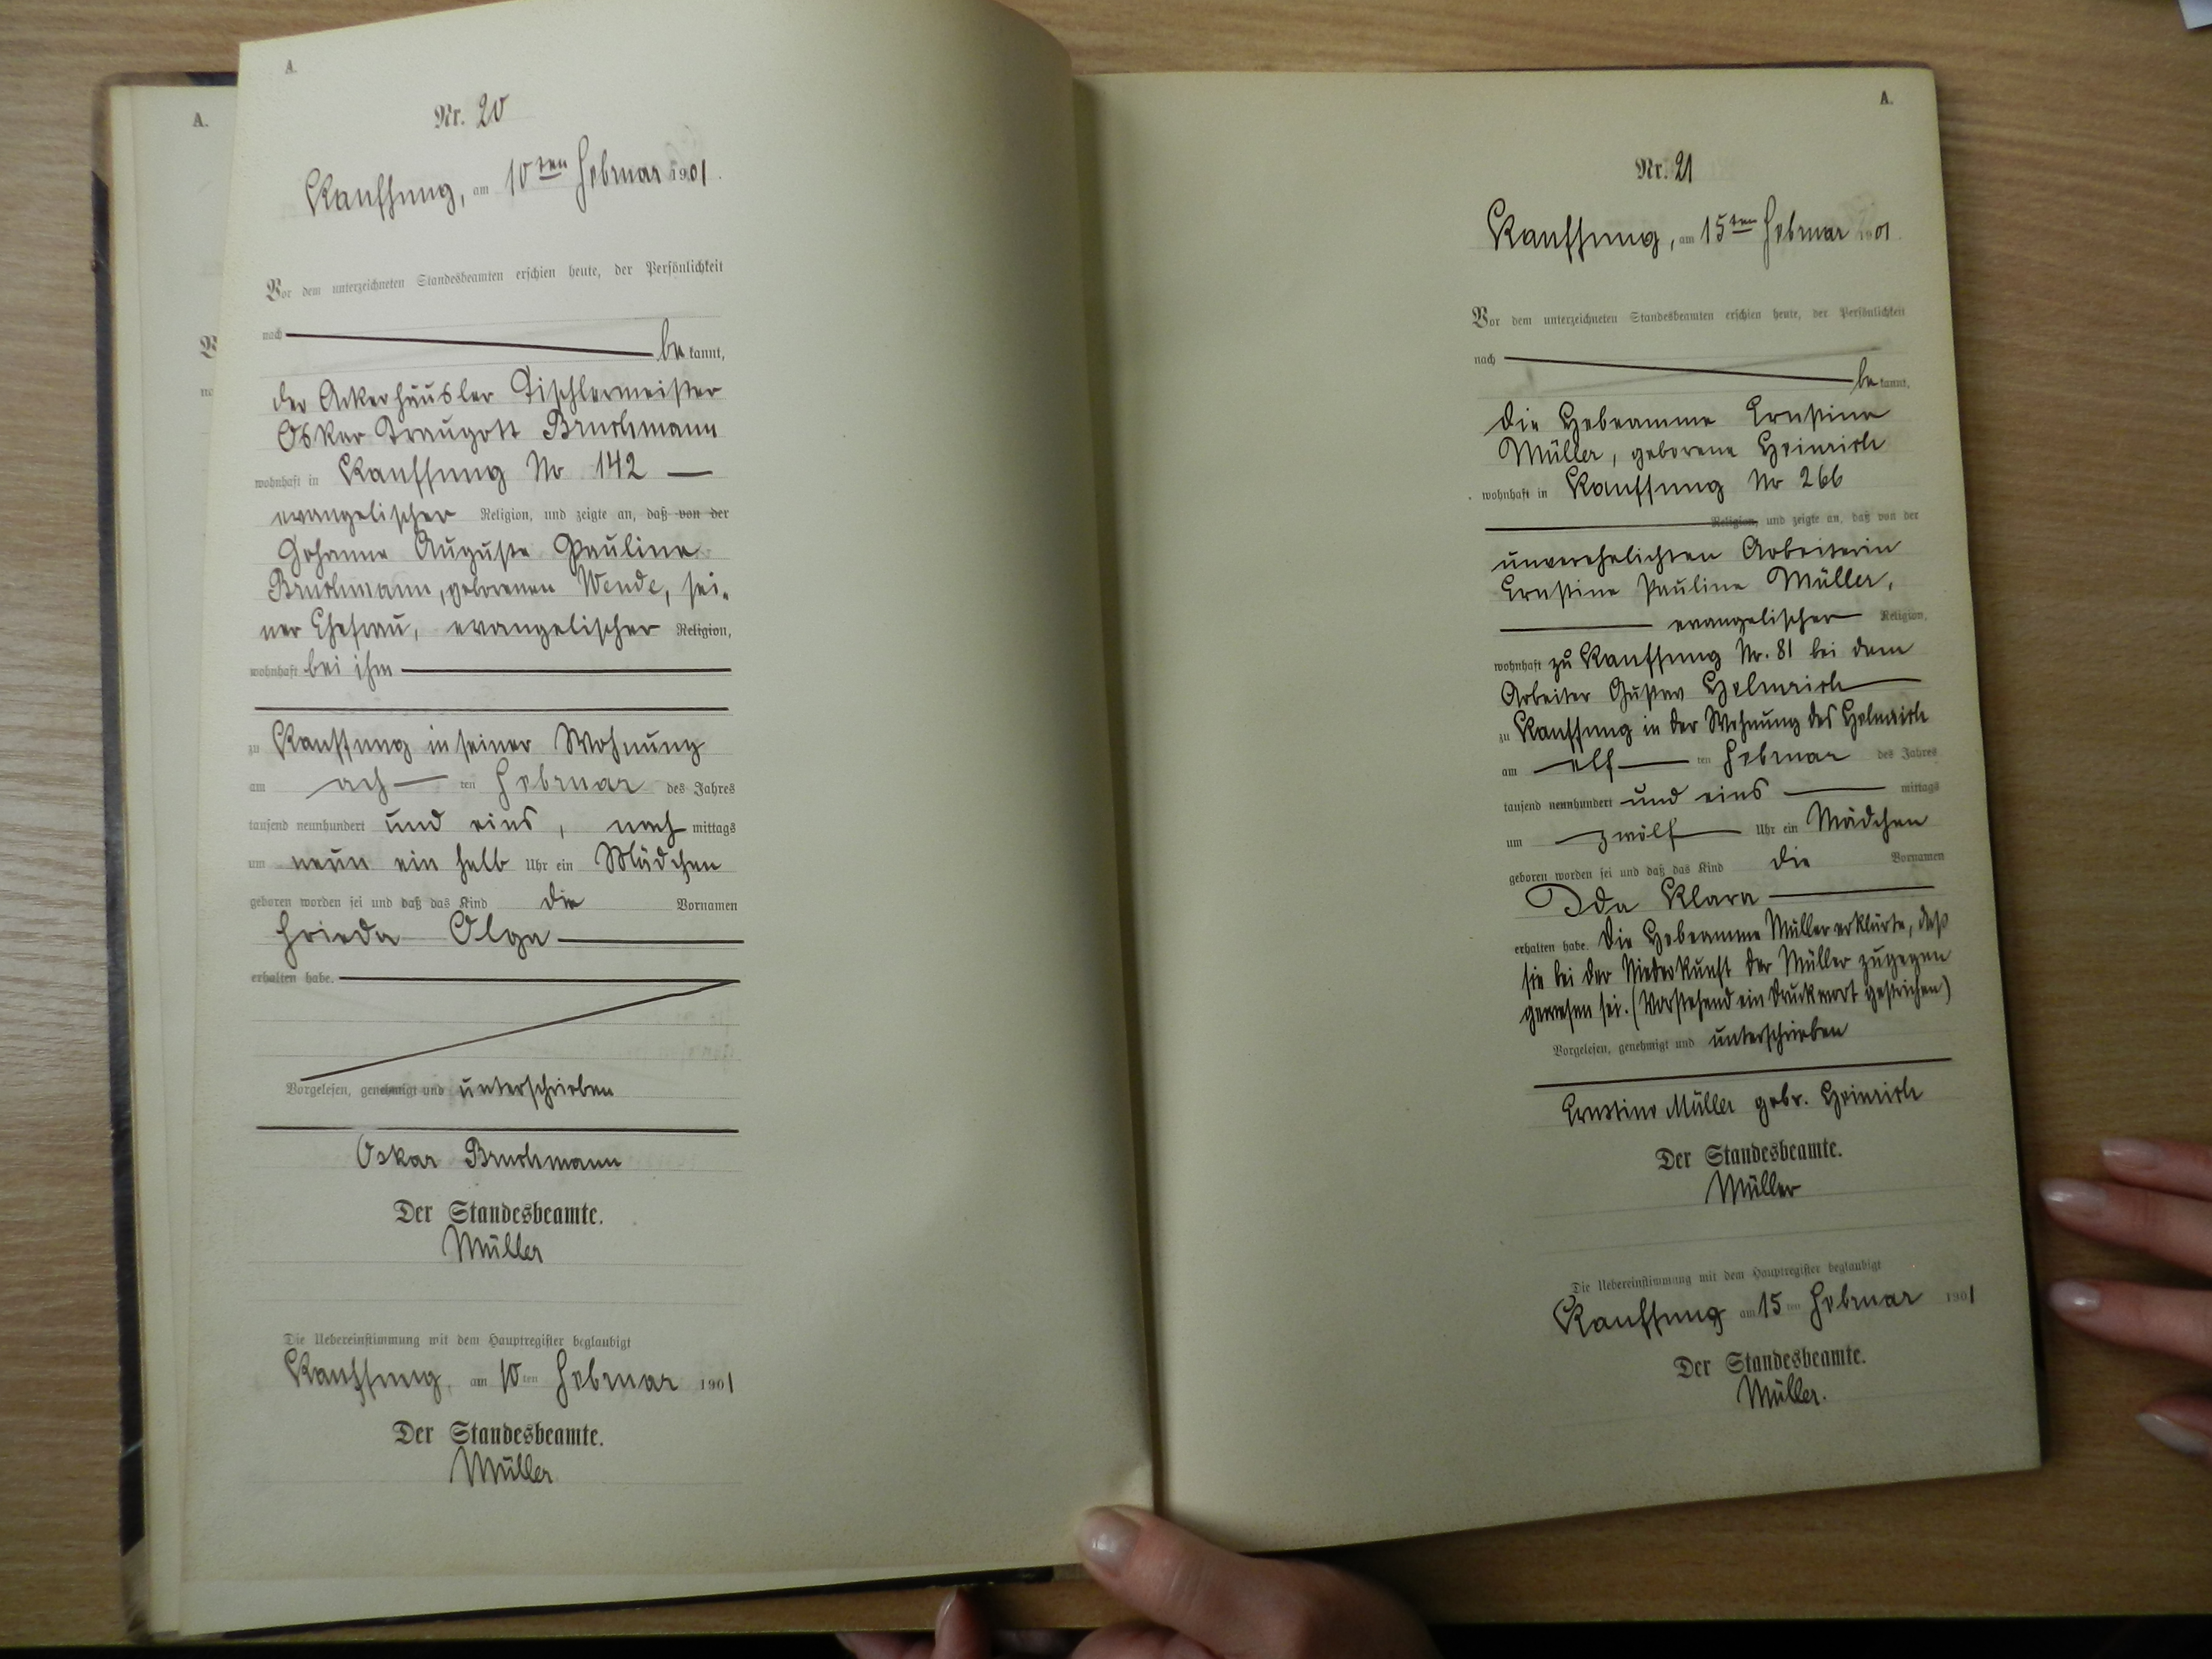 A.
A.
Nr. 20
Kauffung, am 10ten Februar 1901.
Vor dem unterzeichneten Standesbeamten erschien heute, der Persönlichkeit
nach
be kannt,
der Ackerhäusler Tischlermeister
Oskar Traugott Bruchmann
wohnhaft in Kauffung No 142
evangelischer Religion, und zeigte an, daß von der
Johanne Auguste Pauline
Bruchmann, geborenen Wende, sei-
ner Ehefrau, evangelischer Religion,
wohnhaft bei ihm
zu Kauffung in seiner Wohnung
am ach ten Februar des Jahres
tausend neunhundert und eins, nach mittags
um neun ein halb Uhr ein Mädchen
geboren worden sei und daß das Kind die Vornamen
Frieda Olga
erhalten habe.
Vorgelesen, genehmigt und unterschrieben
Oskar Bruchmann
Der Standesbeamte.
Müller
Die Uebereinstimmung mit dem Hauptregister beglaubigt
Kauffung, am 10ten Februar 1901
Der Standesbeamte.
Müller
A.
Nr. 21
Kauffung, am 15ten Februar 1901.
Vor dem unterzeichneten Standesbeamten erschien heute, der Persönlichkeit
nach
be kannt,
die Hebeamme Ernstine
Müller, geborene Heinrich
wohnhaft in Kauffung No 266
Religion, und zeigte an, daß von der
unverehelichten Arbeiterin
Ernstine Pauline Müller,
evangelischer Religion,
wohnhaft zu Kauffung Nr. 81 bei dem
Arbeiter Gustav Helmrich
zu Kauffung in der Wohnung des Helmrich
am elf ten Februar des Jahres
tausend neunhundert und eins mittags
um zwölf Uhr ein Mädchen
geboren worden sei und daß das Kind die Vornamen
Ida Klara
erhalten habe. Die Hebeamme Müller erklärte, daß
sie bei der Niederkunft der Müller zugegen
gewesen sei. (Vorstehend ein Druckwort gestrichen)
Vorgelesen, genehmigt und unterschrieben
Ernstine Müller gebr. Heinrich
Der Standesbeamte.
Müller
Die Uebereinstimmung mit dem Hauptregister beglaubigt
Kauffung am 15ten Februar 1901
Der Standesbeamte.
Müller.